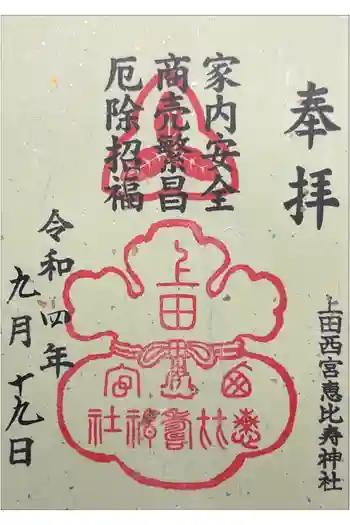 奉拝
上田西宮恵比寿神社
家内安全
商売繁昌
厄除招福
上田
西宮
恵比寿
神社
令和四年
九月十九日